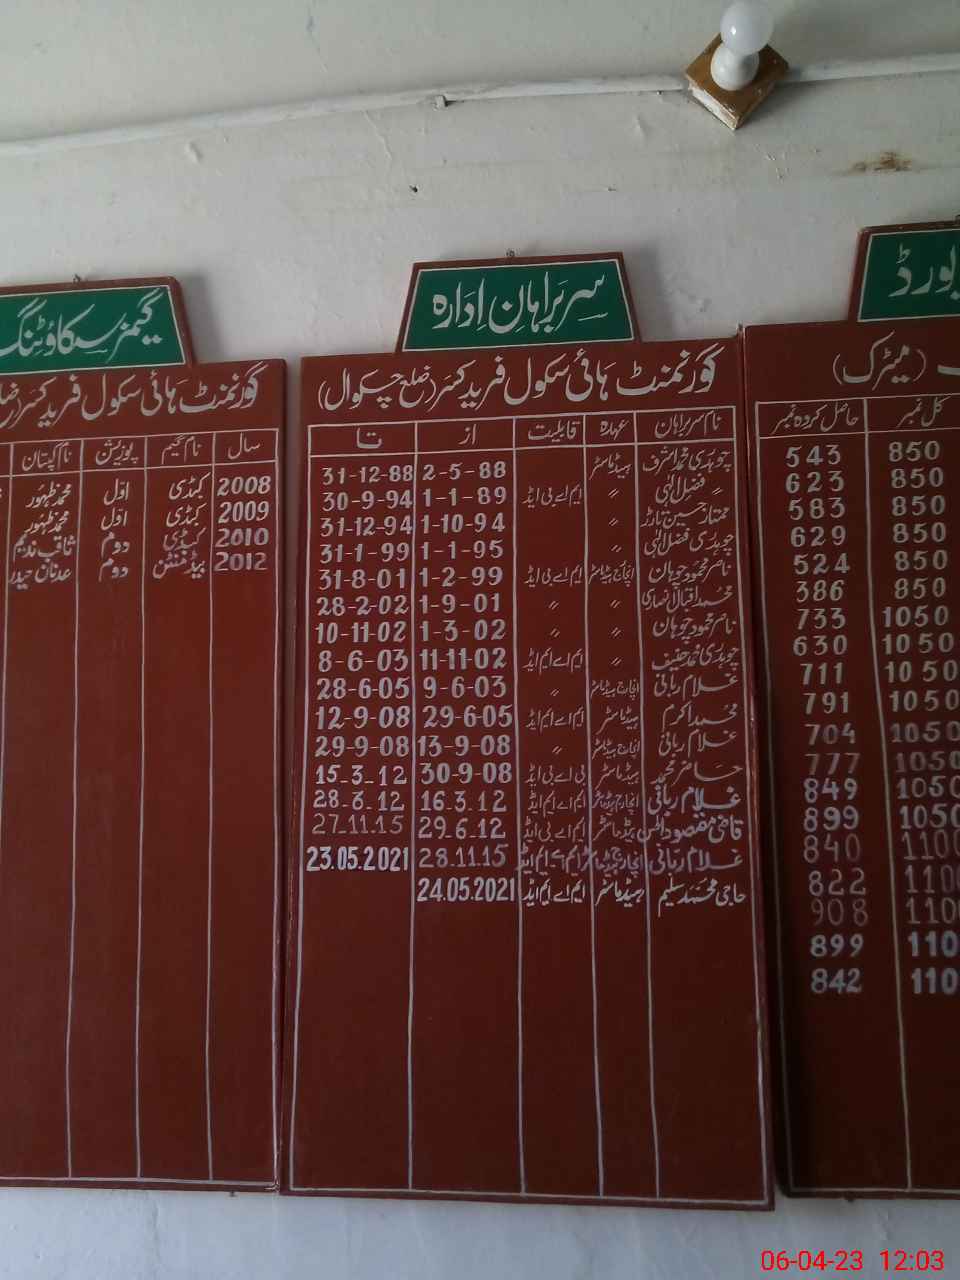 سربراہان ادارہ
گورنمنٹ ہائی سکول فرید کسر (ضلع چکوال)
نام سربراہان عہدہ قابلیت از تا
چوہدری محمد اشرف ہیڈماسٹر 2-5-88 31-12-88
〃 فضل الٰہی 〃 ایم اے بی ایڈ 1-1-89 30-9-94
ممتاز حسین تارڑ 〃 1-10-94 31-12-94
چوہدری فضل الٰہی 〃 1-1-95 31-1-99
ناصر محمود چوہان انچارج ہیڈماسٹر ایم اے بی ایڈ 1-2-99 31-8-01
محمد اقبال انصاری 〃 〃 1-9-01 28-2-02
ناصر محمود چوہان 〃 〃 1-3-02 10-11-02
چوہدری محمد حنیف 〃 ایم اے ایم ایڈ 11-11-02 8-6-03
غلام ربانی انچارج ہیڈماسٹر 〃 9-6-03 28-6-05
محمد اکرم ہیڈماسٹر ایم اے ایم ایڈ 29-6-05 12-9-08
غلام ربانی انچارج ہیڈماسٹر 〃 13-9-08 29-9-08
حاضر محمد ہیڈماسٹر بی اے بی ایڈ 30-9-08 15-3-12
غلام ربانی انچارج ہیڈماسٹر ایم اے ایم ایڈ 16.3.12 28-6.12
قاضی مقصود ہیڈماسٹر ایم اے بی ایڈ 29.6.12 27-11-15
غلام ربانی انچارج ہیڈماسٹر ایم اے ایم ایڈ 28.11.15 23.05.2021
حاجی محمد سلیم ہیڈماسٹر ایم اے ایم ایڈ 24.05.2021
گیمز سکاؤٹنگ
گورنمنٹ ہائی سکول فرید کسر (ض
سال نام گیم پوزیشن نام کپتان
2008 کبڈی اوّل محمد ظہور
2009 کبڈی اوّل محمد ظہور
2010 کبڈی دوم ثاقب ندیم
2012 بیڈمنٹن دوم عدنان حیدر
بورڈ
(میٹرک)
کل نمبر حاصل کردہ نمبر
850 543
850 623
850 583
850 629
850 524
850 386
1050 733
1050 630
1050 711
1050 791
1050 704
1050 777
1050 849
1050 899
1100 840
1100 822
1100 908
110 899
110 842
06-04-23 12:03